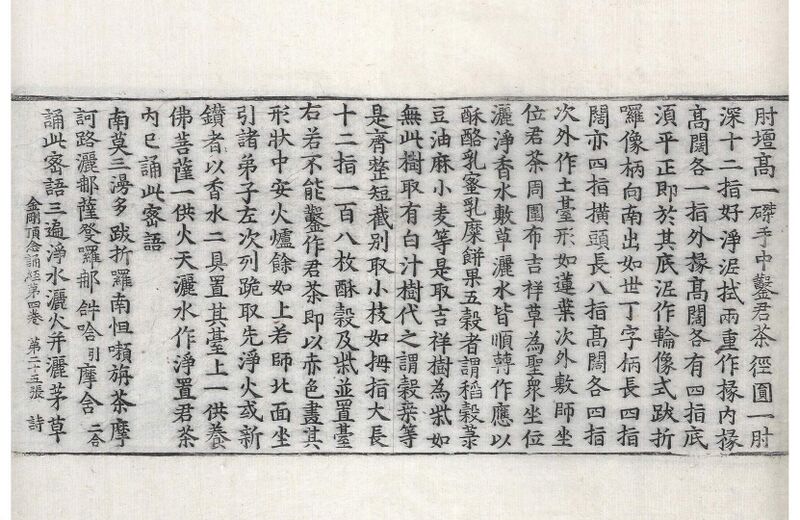 肘壇高一磔手中鑿君茶徑圓一肘
深十二指好淨泥拭兩重作掾內掾
高闊各一指外掾高闊各有四指底
湏平正即於其底泥作輪像式跋折
囉像柄向南出如世丁字柄長四指
闊亦四指橫頭長八指高闊各四指
次外作土臺形如蓮葉次外敷師坐
位君茶周圍布吉祥草為聖衆坐位
灑淨香水敷草灑水皆順轉作應以
酥酪乳蜜乳糜餅果五穀者謂稻穀菉
豆油麻小麦等是取吉祥樹為柴如
無此樹取有白汁樹代之謂穀桒等
是齊整短截別取小枝如拇指大長
十二指一百八枚酥穀及柴並置臺
右若不能鑿作君茶即以赤色畫其
形狀中安火爐餘如上若師北面坐
引諸弟子左次列跪取先淨火或新
鑚者以香水二具置其臺上一供養
佛菩薩一供火天灑水作淨置君茶
內已誦此密語
南莫三湯多跋折囉南怛嚩旃茶摩
訶路灑郍薩癹囉郍𤙖吽引摩含二合
誦此密語三遍淨水灑火并灑茅草
金剛頂念誦經第四卷 第二十五張 詩